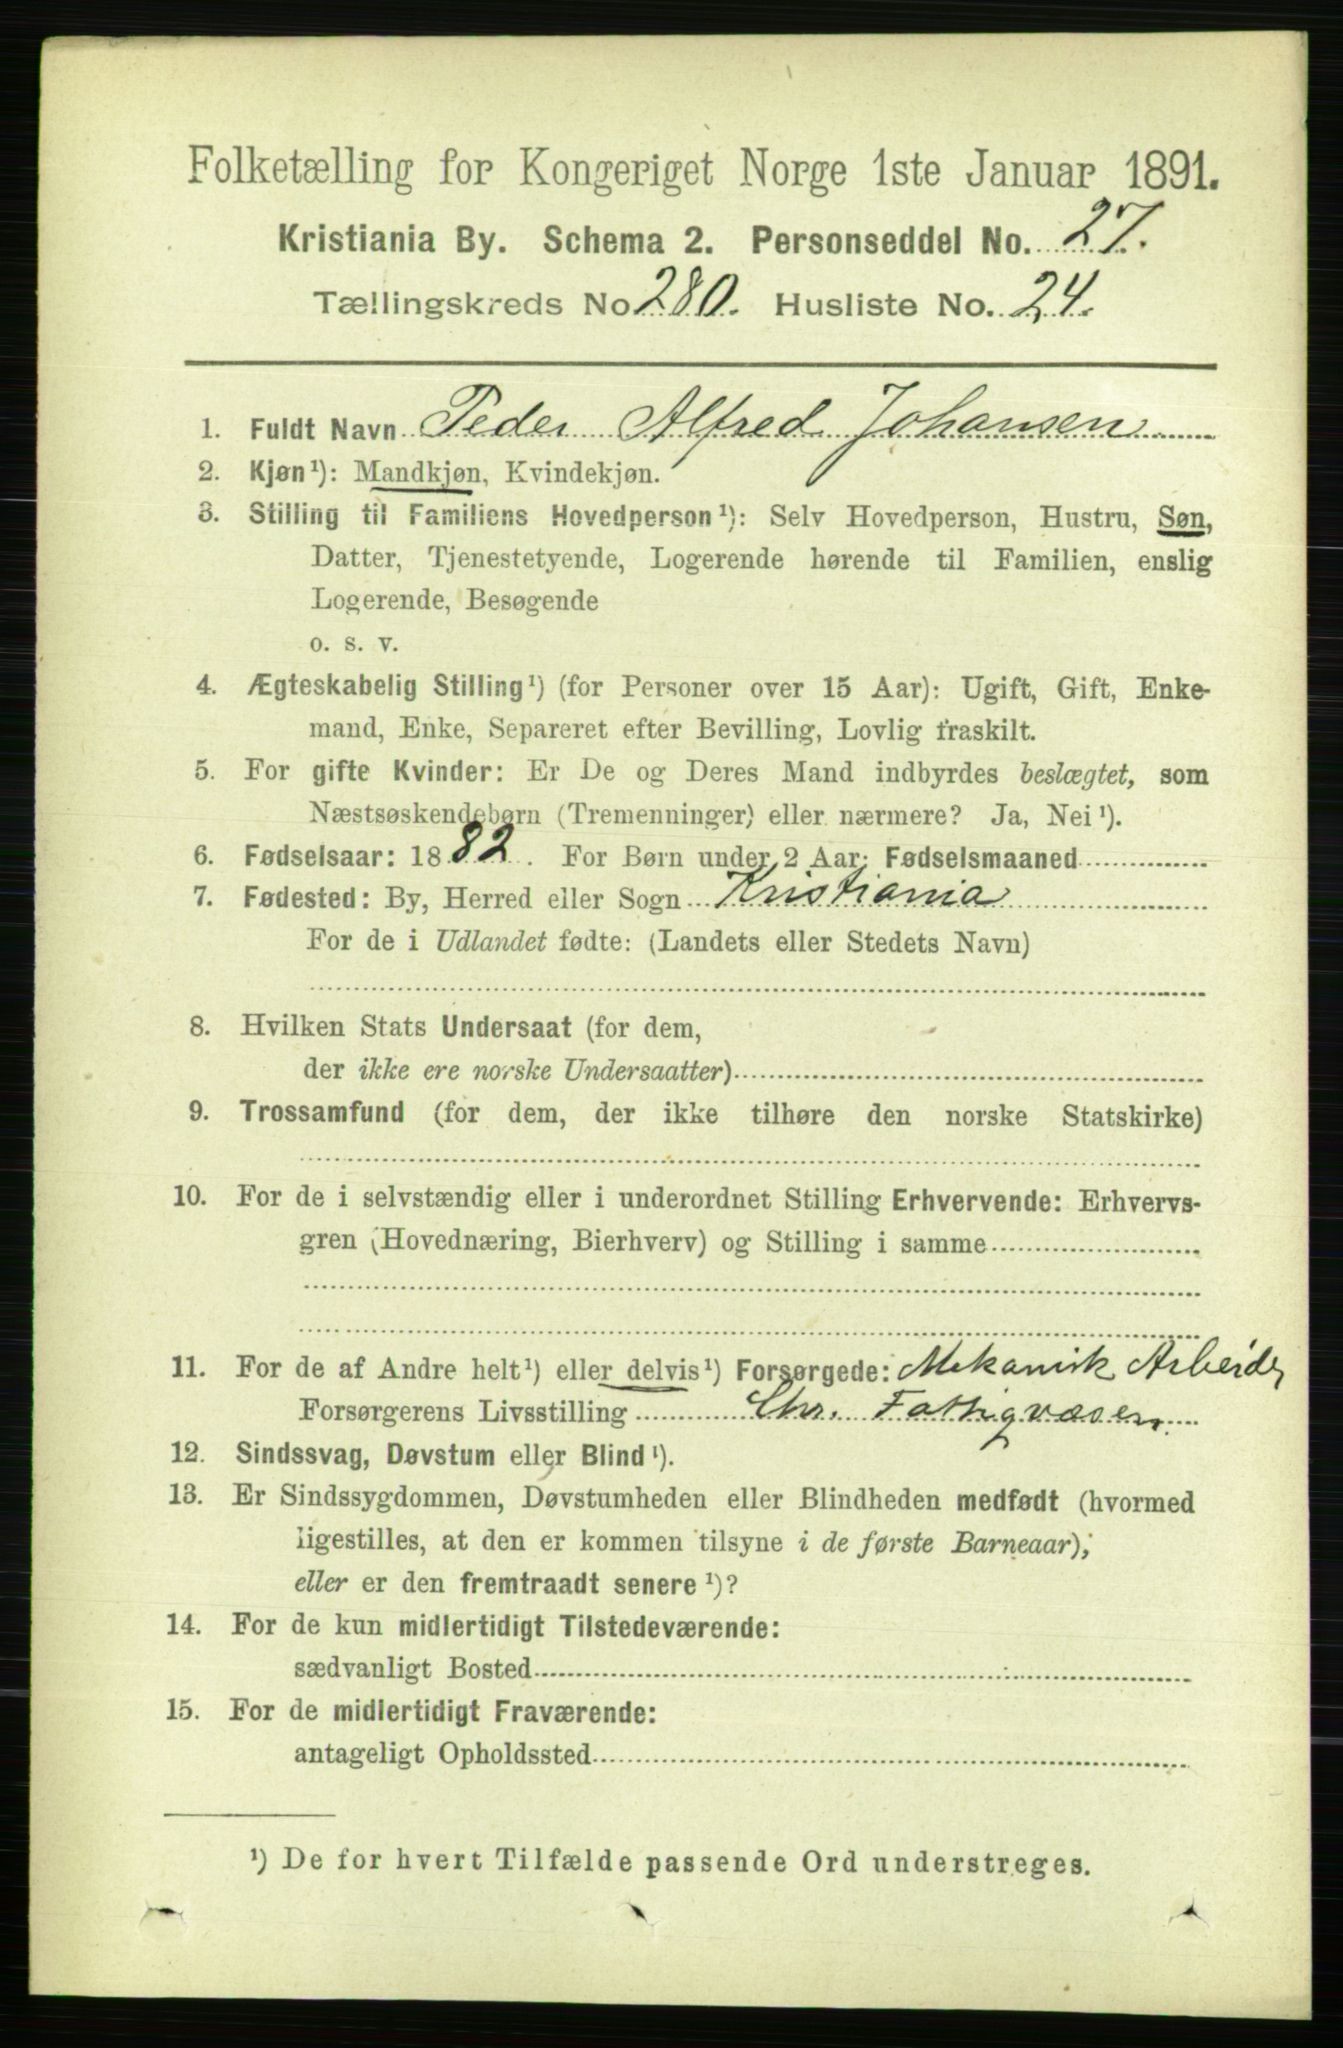 Folketælling for Kongeriget Norge 1ste Januar 1891.
Kristiania By. Schema 2. Personseddel No. 27.
Tællingskreds No 280. Husliste No. 24.
1. Fuldt Navn Peder Alfred Johansen
2. Kjøn¹): Mandkjøn, Kvindekjøn.
3. Stilling til Familiens Hovedperson¹): Selv Hovedperson, Hustru, Søn,
Datter, Tjenestetyende, Logerende hørende til Familien, enslig
Logerende, Besøgende
o. s. v.
4. Ægteskabelig Stilling¹) (for Personer over 15 Aar): Ugift, Gift, Enke-
mand, Enke, Separeret efter Bevilling, Lovlig fraskilt.
5. For gifte Kvinder: Er De og Deres Mand indbyrdes beslægtet, som
Næstsøskendebørn (Tremenninger) eller nærmere? Ja, Nei¹).
6. Fødselsaar: 1882. For Børn under 2 Aar: Fødselsmaaned
7. Fødested: By, Herred eller Sogn Kristiania
For de i Udlandet fødte: (Landets eller Stedets Navn)
8. Hvilken Stats Undersaat (for dem,
der ikke ere norske Undersaatter)
9. Trossamfund (for dem, der ikke tilhøre den norske Statskirke)
10. For de i selvstændig eller i underordnet Stilling Erhvervende: Erhvervs-
gren (Hovednæring, Bierhverv) og Stilling i samme
11. For de af Andre helt¹) eller delvis¹) Forsørgede: Mekanisk Arbeider
Forsørgerens Livsstilling Chr. Fattigvæsen.
12. Sindssvag, Døvstum eller Blind¹).
13. Er Sindssygdommen, Døvstumheden eller Blindheden medfødt (hvormed
ligestilles, at den er kommen tilsyne i de første Barneaar),
eller er den fremtraadt senere¹)?
14. For de kun midlertidigt Tilstedeværende:
sædvanligt Bosted
15. For de midlertidigt Fraværende:
antageligt Opholdssted
¹) De for hvert Tilfælde passende Ord understreges.